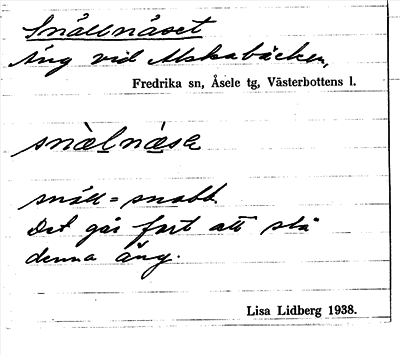 Snällnäset
Äng vid Alskabäcken,
Fredrika sn, Åsele tg, Västerbottens l.
snàl̲nä̀sɛ
snäll = snabb.
Det går fort att slå
denna äng.
Lisa Lidberg 1938.